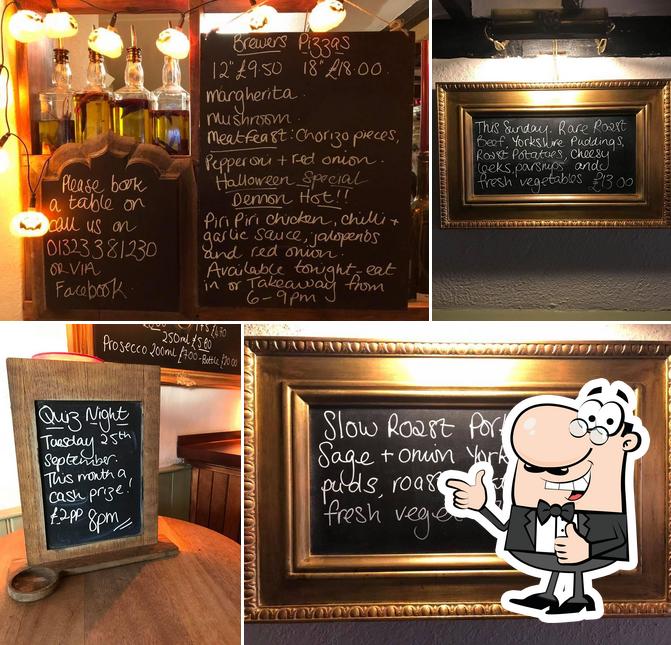 Brewers Pizzas
12" £9.50 18" £18.00.
Margherita.
Mushroom.
Meatfeast: Chorizo pieces,
Pepperoni + red onion.
Halloween Special
Demon Hot!!
Piri Piri chicken, chilli +
garlic sauce, jalopenos
and red onion.
Available tonight-eat
in or Takeaway from
6-9pm
Please book
a table on
call us on
01323381230
or via
Facebook.
This Sunday. Rare Roast
Beef, Yorkshire Puddings,
Roast Potatoes, Cheesy
leeks, parsnips and
fresh vegetables £13.00
250ml £5.80
Prosecco 200ml £7.00-Bottle £20.00
Quiz Night
Tuesday 25th
September.
This month a
cash prize!
£2pp 8pm
Slow Roast
Sage + onion
puds,
fresh